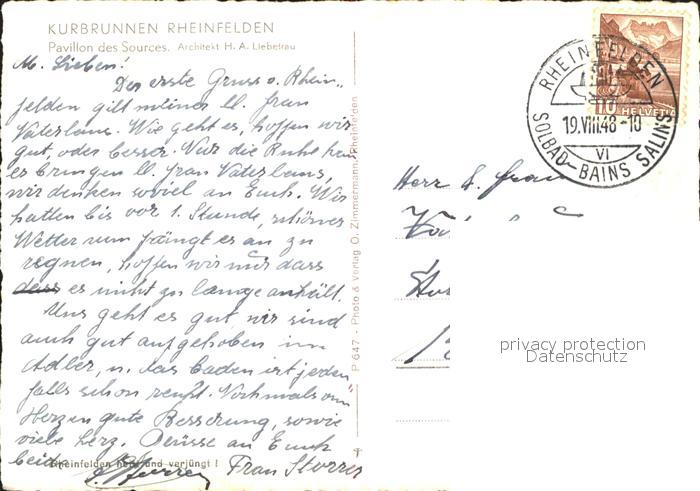 KURBRUNNEN RHEINFELDEN
Pavillon des Sources. Architekt H. A. Liebetrau
M. Lieben!
Der erste Gruss v. Rhein-
felden gilt meiner ll. Frau
Vaterlaus. Wie geht es, hoffen wir
gut, oder besser. Nur die Ruhe kan
es bringen ll. Frau Vaterlaus,
wir denken soviel an Euch. Wir
hatten bis vor 1. Stunde, schönes
Wetter nun fängt es an zu
regnen, hoffen wir nur dass
dass es nicht zu lange anhält.
Uns geht es gut, wir sind
auch gut aufgehoben im
Adler, u. das baden ist jeden
falls schon recht. Nochmals von
Herzen gute Besserung, sowie
viele herz. Grüsse an Euch
beide
Rheinfelden heilt und verjüngt !
Frau Storrer
P 647 - Photo & Verlag O. Zimmermann, Rheinfelden
HELVETIA
10
RHEINFELDEN
19.VIII.48-10
VI
SOLBAD-BAINS SALINS
Herr & Frau
privacy protection
Datenschutz